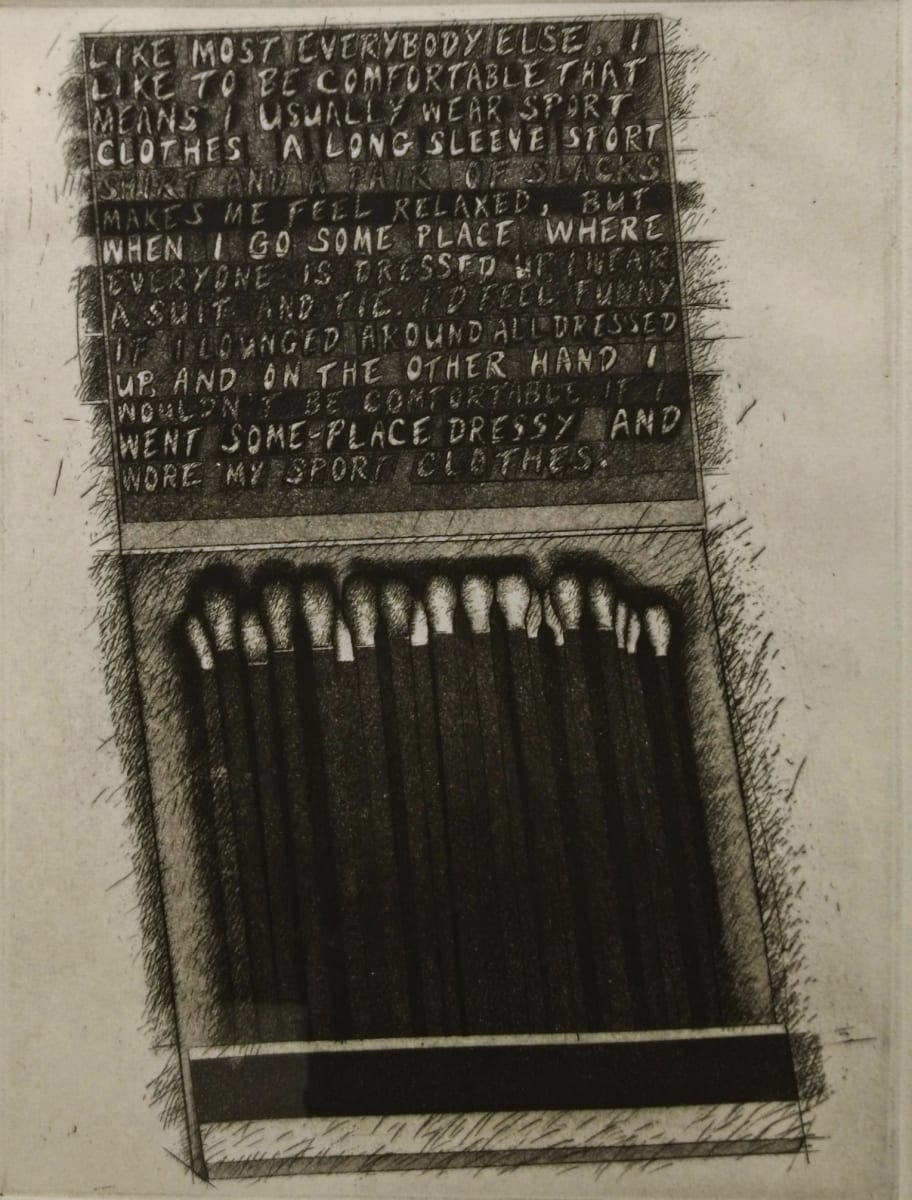 LIKE MOST EVERYBODY ELSE, I
LIKE TO BE COMFORTABLE THAT
MEANS I USUALLY WEAR SPORT
CLOTHES A LONG SLEEVE SPORT
SHIRT AND A PAIR OF SLACKS
MAKES ME FEEL RELAXED, BUT
WHEN I GO SOME PLACE WHERE
EVERYONE IS DRESSED UP I WEAR
A SUIT AND TIE. I'D FEEL FUNNY
IF I LOUNGED AROUND ALL DRESSED
UP, AND ON THE OTHER HAND I
WOULDN'T BE COMFORTABLE IF I
WENT SOME-PLACE DRESSY AND
WORE MY SPORT CLOTHES.